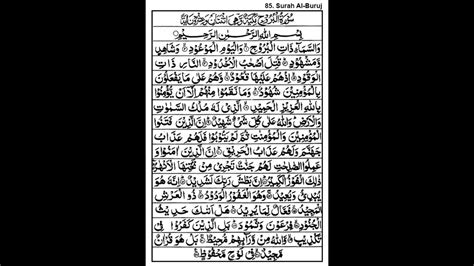 85. Surah Al-Buruj
سُوْرَةُ الْبُرُوْجِ مَكِّيَّةٌ وَّهِيَ اثْنَتَانِ وَعِشْرُوْنَ اٰيَةً
بِسْمِ اللّٰهِ الرَّحْمٰنِ الرَّحِيْمِ
وَالسَّمَآءِ ذَاتِ الْبُرُوْجِ ۙ وَالْيَوْمِ الْمَوْعُوْدِ ۙ وَشَاهِدٍ
وَّمَشْهُوْدٍ ؕ قُتِلَ اَصْحٰبُ الْاُخْدُوْدِ ۙ النَّارِ ذَاتِ
الْوَقُوْدِ ۙ اِذْ هُمْ عَلَيْهَا قُعُوْدٌ ۙ وَّهُمْ عَلٰى مَا يَفْعَلُوْنَ
بِالْمُؤْمِنِيْنَ شُهُوْدٌ ؕ وَمَا نَقَمُوْا مِنْهُمْ اِلَّآ اَنْ يُّؤْمِنُوْا
بِاللّٰهِ الْعَزِيْزِ الْحَمِيْدِ ۙ الَّذِيْ لَهٗ مُلْكُ السَّمٰوٰتِ
وَالْاَرْضِ ؕ وَاللّٰهُ عَلٰى كُلِّ شَيْءٍ شَهِيْدٌ ؕ اِنَّ الَّذِيْنَ فَتَنُوا
الْمُؤْمِنِيْنَ وَالْمُؤْمِنٰتِ ثُمَّ لَمْ يَتُوْبُوْا فَلَهُمْ عَذَابُ
جَهَنَّمَ وَلَهُمْ عَذَابُ الْحَرِيْقِ ؕ اِنَّ الَّذِيْنَ اٰمَنُوْا وَ
عَمِلُوا الصّٰلِحٰتِ لَهُمْ جَنّٰتٌ تَجْرِيْ مِنْ تَحْتِهَا الْاَنْهٰرُ
ذٰلِكَ الْفَوْزُ الْكَبِيْرُ ؕ اِنَّ بَطْشَ رَبِّكَ لَشَدِيْدٌ ؕ اِنَّهٗ هُوَ
يُبْدِئُ وَيُعِيْدُ ۚ وَهُوَ الْغَفُوْرُ الْوَدُوْدُ ۙ ذُو الْعَرْشِ
الْمَجِيْدُ ۙ فَعَّالٌ لِّمَا يُرِيْدُ ؕ هَلْ اَتٰىكَ حَدِيْثُ
الْجُنُوْدِ ۙ فِرْعَوْنَ وَثَمُوْدَ ؕ بَلِ الَّذِيْنَ كَفَرُوْا فِيْ
تَكْذِيْبٍ ۙ وَّاللّٰهُ مِنْ وَّرَآئِهِمْ مُّحِيْطٌ ۚ بَلْ هُوَ قُرْاٰنٌ
مَّجِيْدٌ ۙ فِيْ لَوْحٍ مَّحْفُوْظٍ